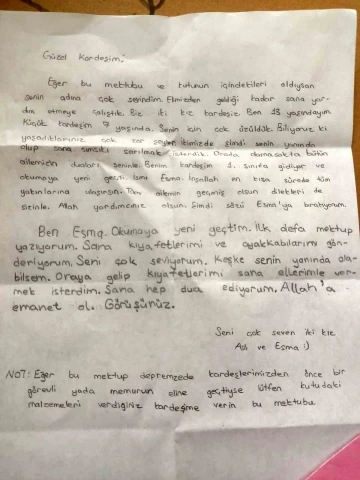 Güzel Kardeşim;
Eğer bu mektubu ve kutunun içindekileri aldıysan
senin adına çok sevindim. Elimizden geldiği kadar sana yar-
dım etmeye çalıştık. Biz iki kız kardeşiz. Ben 13 yaşındayım
Küçük kardeşim 7 yaşında. Senin için çok üzüldük. Biliyoruz ki
yaşadıklarınız çok zor şeyler ikimizde şimdi senin yanında
olup sana sımsıkı sarılmak isterdik. Orada olmasakta bütün
ailemizin duaları seninle. Benim kardeşim 1. sınıfa gidiyor ve
okumaya yeni geçti. İsmi Esma. İnşallah en kısa sürede tüm
yakınlarına ulaşırsın. Tüm ailemin geçmiş olsun dilekleri de
sizinle. Allah yardımcınız olsun. Şimdi sözü Esma'ya bırakıyorum.
Ben Esma. Okumaya yeni geçtim. İlk defa mektup
yazıyorum. Sana kıyafetlerimi ve ayakkabılarımı gön-
deriyorum. Seni çok seviyorum. Keşke senin yanında ola-
bilsem. Oraya gelip kıyafetlerimi sana ellerimle ver-
mek isterdim. Sana hep dua ediyorum. Allah'a
emanet ol. Görüşürüz.
Seni çok seven iki kız
Aslı ve Esma :)
NOT: Eğer bu mektup depremzede kardeşlerimizden önce bir
görevli yada memurun eline geçtiyse lütfen kutudaki
malzemeleri verdiğiniz kardeşime verin bu mektubu.